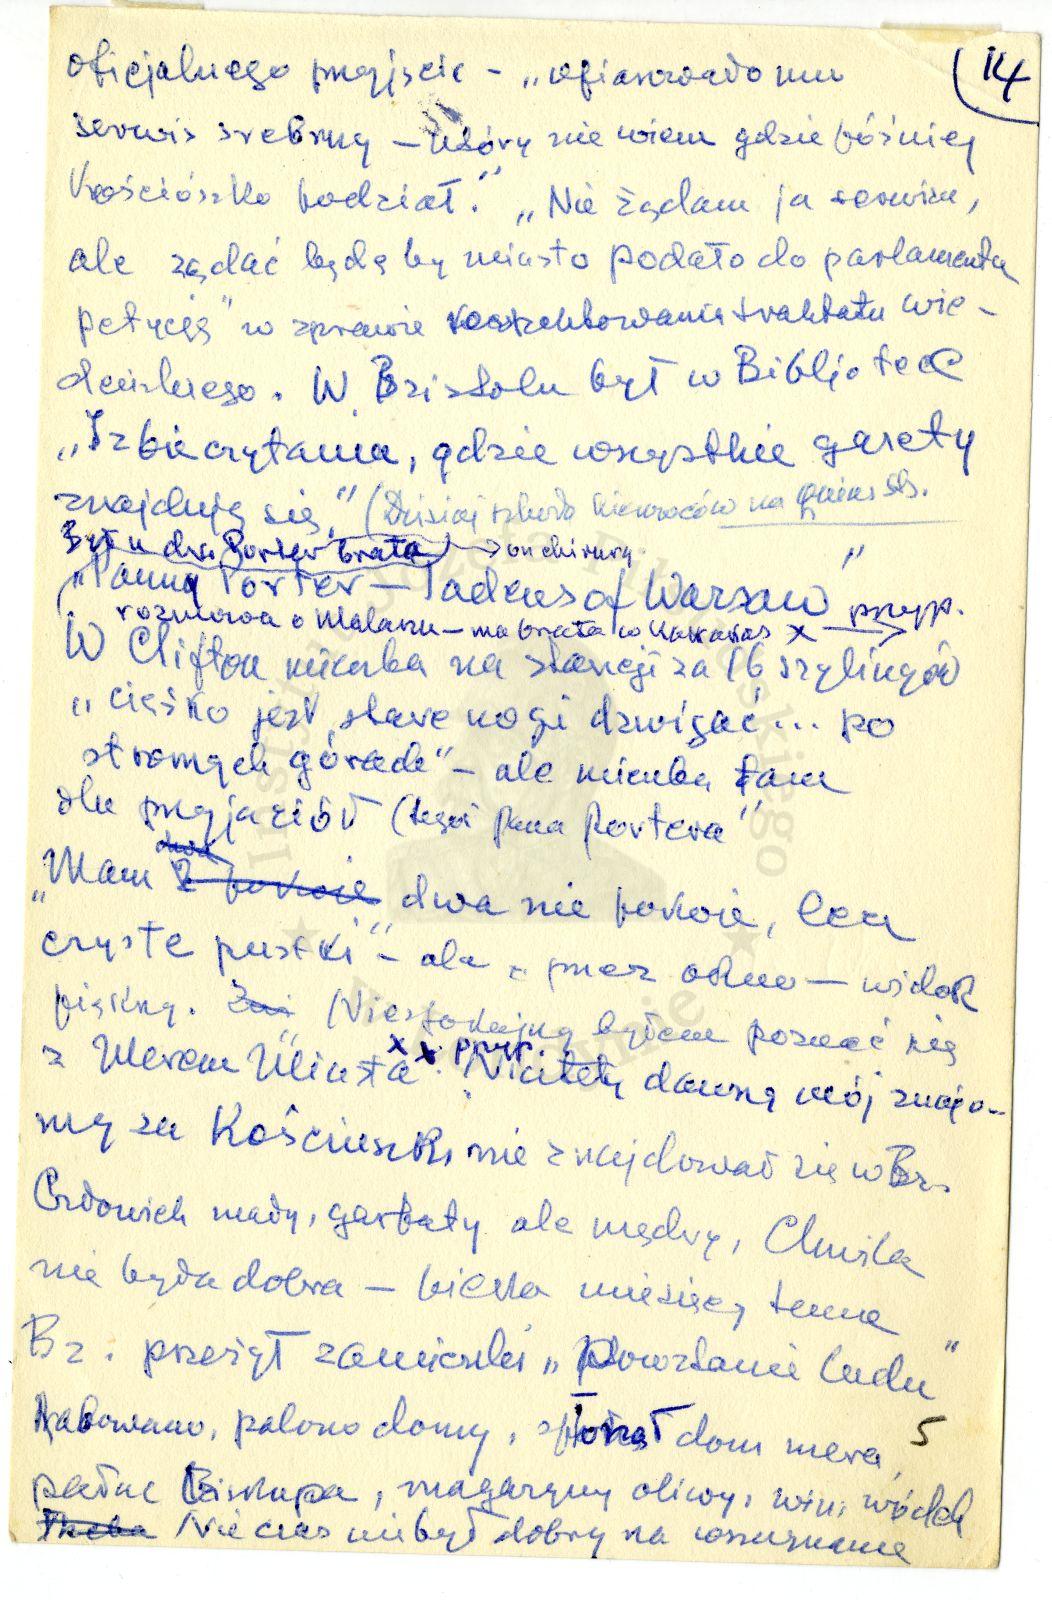 14
oficjalnego przyjęcie – „ofiarowało mu
serwis srebrny – który nie wiem gdzie póśniej
Kościószko podział." „Nie żądam ja serwisu,
ale żądać będę by miasto podało do parlamentu
petycję" w sprawie respektowania traktatu wie-
deńskiego. W Bristolu był w Bibljotece
„Izbie czytania, gdzie wszystkie gazety
znajdują się." (Dzisiaj szkoła kierowców na Queens Sq.
Był u dra Porter brata → on chirurg
„Panny Porter – Tadeusz of Warsaw" przyp.
rozmowa o Malarzu – ma brata w Karakas x →
W Clifton mieszka na stancji za 16 szylingów
„ciężko jest stare nogi dzwigać... po
stromych górach" – ale mieszka tam
dla przyjaciół (tegoż Pana Portera"
„Mam dwa 2 pokoje dwa nie pokoie, lecz
czyste pustki" – ale przez okno – widok
piękny. Niespokojny byłem poznać się
z Merem Miasta" xx przyp. Niestety dawny mój znajo-
my za Kościuszki nie znajdował się w Br.
Człowiek mały, garbaty ale mądry, Chwila
nie była dobra – kilka miesięcy temu
Br. przeżył zamieszki „Powstanie ludu"
Rabowano, palono domy, spłonął dom mera, 5
pałac Biskupa, magazyny oliwy, win, wódek
Trzeba Nie czas mi był dobry na wszczynanie
Instytut Józefa Piłsudskiego
w Londynie